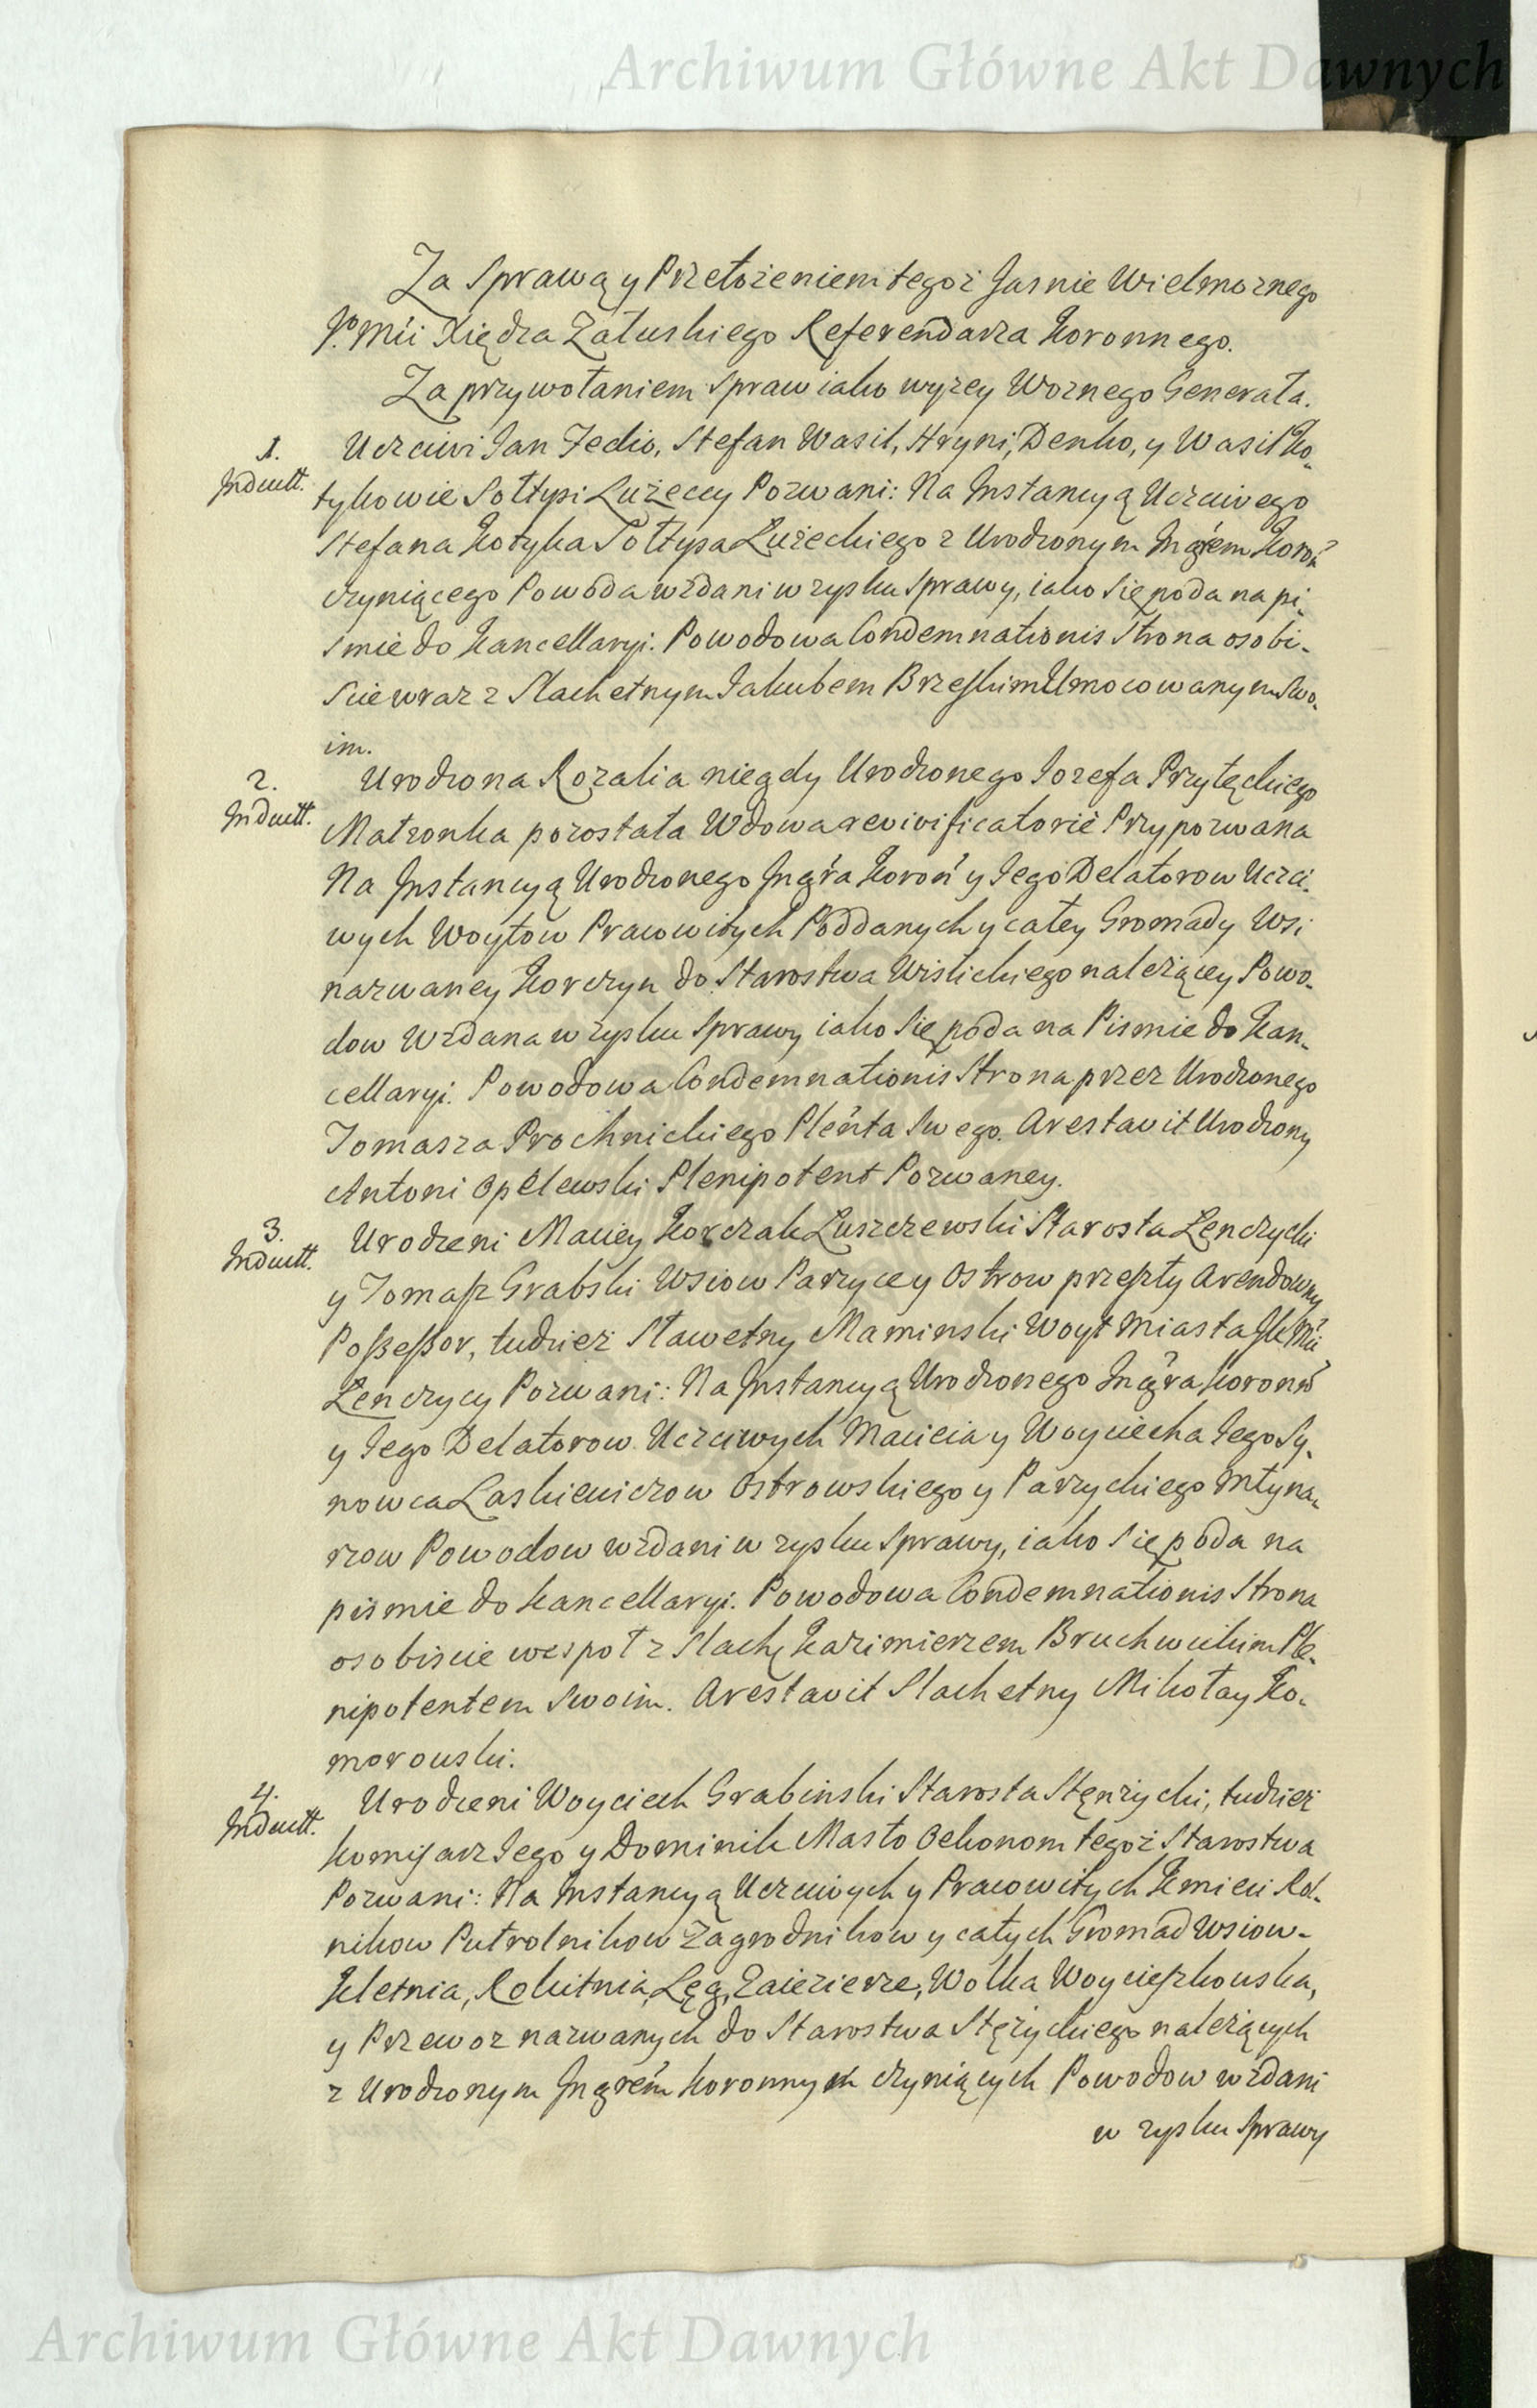 Archiwum Główne Akt Dawnych
Za Sprawą y Przełożeniem tegoż Jasnie Wielmoznego
Jº Mći Xiędza Załuskiego Referendarza Koronnego.
Za przywołaniem spraw iako wyzey Woznego Generała.
1.
Inductt.
Uczciwi Jan Fedio, Stefan Wasil, Hryni, Denko, y Wasil Ko-
tykowie Sołtysi Łużeccy Pozwani: Na Instancyą Uczciwego
Stefana Kotyka Sołtysa Łużeckiego z Urodzonym Ingrem Koroń
czyniącego Powoda wzdani w zysku sprawy, iako się poda na pi-
śmie do Kancellaryi. Powodowa Condemnationis Strona osobi-
scie wraz z Slachetnym Jakubem Brzeskim Umocowanym Swo-
im.
2.
Inductt.
Urodzona Rozalia niegdy Urodzonego Jozefa Przyłęckiego
Małzonka pozostała Wdowa revivificatorie Przypozwana
Na Instancyą Urodzonego Ingra Koroń y Jego Delatorow Uczci-
wych Woytow Pracowitych Poddanych y całey Gromady Wsi
nazwaney Korczyn do Starostwa Wislickiego należącey Powo-
dow Wzdana w zysku sprawy iako się poda na Pismie do Kan-
cellaryi. Powodowa Condemnationis Strona przez Urodzonego
Tomasza Prochnickiego Pleńta Swego. Arestavit Urodzony
Antoni Opelewski Plenipotent Pozwaney.
3.
Induttt.
Urodzeni Maciey Korczak Łuszczewski Starosta Łęnczycki
y Tomasz Grabski Wsiow Parzyce y Ostrow przeszły Arendowny
Possessor, tudziez Sławetny Maminski Woyt Miasta JKMći
Łenczycy Pozwani: Na Instancyą Urodzonego Ingra Koronń
y Jego Delatorow Uczciwych Macieia y Woyciecha Jego Sy-
nowca Laskiewiczow Ostrowskiego y Parzyckiego Młyna-
rzow Powodow wzdani w zysku sprawy, iako się poda na
piśmie do Kancellaryi. Powodowa Condemnationis Strona
osobiscie wespoł z Slachę Kazimierzem Bruchwickim Ple-
nipotentem Swoim. Arestavit Slachetny Mikołay Ko-
morowski.
4.
Induttt.
Urodzeni Woyciech Grabinski Starosta Stęnżycki, tudzież
komisarz Jego y Dominik Masło Oekonom tegoż Starostwa
Pozwani: Na Instancyą Uczciwych y Pracowitych Kmieci Rol-
nikow Pułrolnikow Zagrodnikow y całych Gromad Wsiow-
Kletnia, Rokitnia, Łęg, Zaiezierze, Wolka Woycieszkowska,
y Przewoz nazwanych do Starostwa Stężyckiego należących
z Urodzonym Ingrem Koronnym czyniących Powodow wzdani
w zysku Sprawy
Archiwum Główne Akt Dawnych